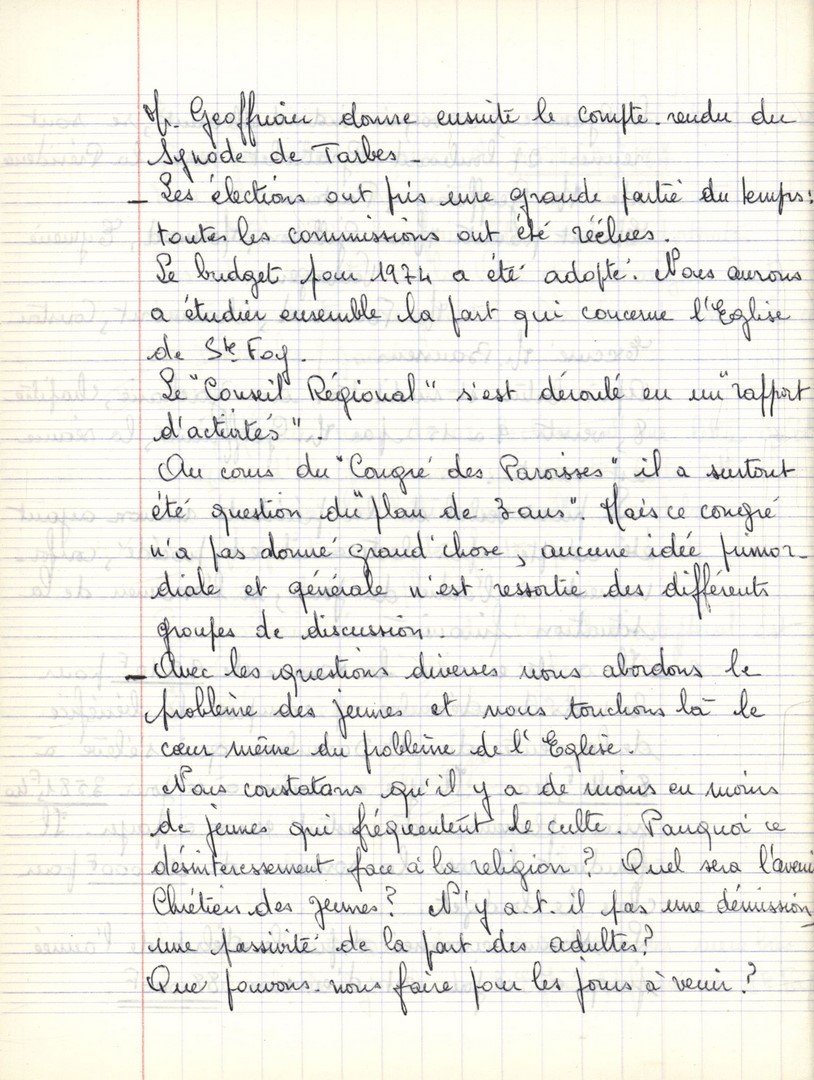 Mr. Geoffriau donne ensuite le compte-rendu du
Synode de Tarbes -
- Les élections ont pris une grande partie du temps :
toutes les commissions ont été réélues.
Le budget pour 1974 a été adopté. Nous aurons
a étudier ensemble la part qui concerne l'Eglise
de Ste Foy.
Le "Conseil Régional" s'est déroulé en un "rapport
d'activités".
Au cours du "Congré des Paroisses" il a surtout
été question du "plan de 3 ans". Mais ce congré
n'a pas donné grand'chose, aucune idée primor-
diale et générale n'est ressortie des différents
groupes de discussion.
- Avec les questions diverses nous abordons le
problème des jeunes et nous touchons là le
cœur même du problème de l'Eglise.
Nous constatons qu'il y a de moins en moins
de jeunes qui fréquentent le culte. Pourquoi ce
désinteressement face à la religion ? Quel sera l'avenir
Chrétien des jeunes ? N'y a t-il pas une démission,
une passivité de la part des adultes ?
Que pouvons-nous faire pour les jours à venir ?